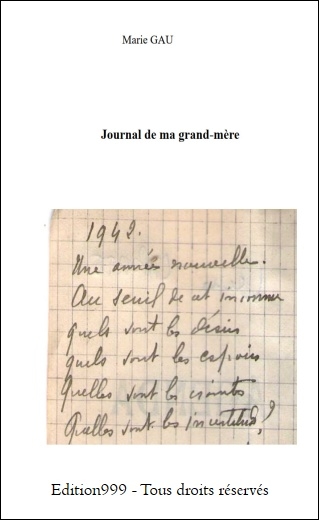 Marie GAU
Journal de ma grand-mère
1942.
Une année nouvelle.
Au seuil de cet inconnu
quels sont les désirs
quels sont les espoirs
Quelles sont les craintes
Quelles sont les incertitudes?
Edition999 - Tous droits réservés